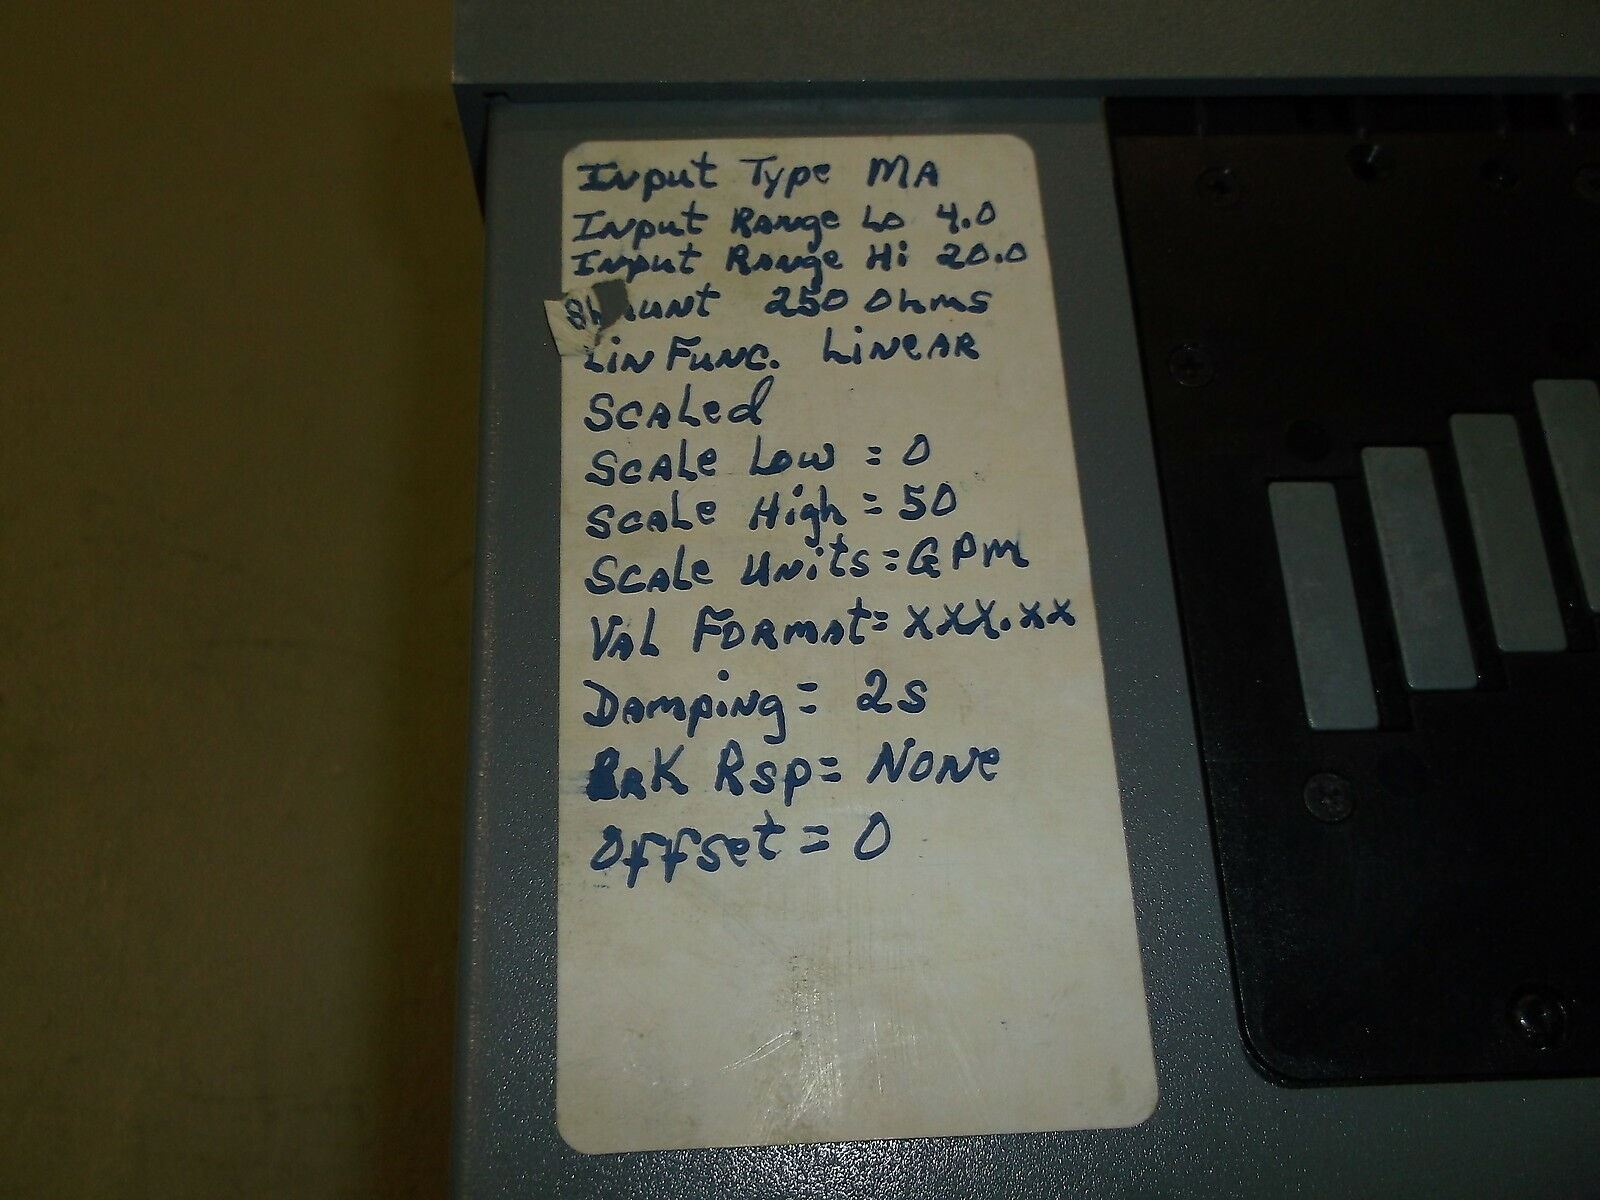 Input Type MA
Input Range Lo 4.0
Input Range Hi 20.0
Shunt 250 Ohms
Lin Func. Linear
Scaled
Scale Low = 0
Scale High = 50
Scale Units = GPM
Val Format = xxx.xx
Damping = 2s
BRK Rsp = None
Offset = 0